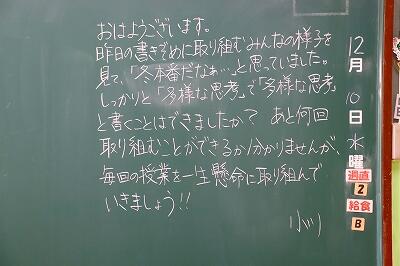 おはようございます。
昨日の書きぞめに取り組むみんなの様子を
見て、「冬本番だなぁ…」と思っていました。
しっかりと「多様な思考」で「多様な思考」
と書くことはできましたか？ あと何回
取り組むことができるか分かりませんが、
毎回の授業を一生懸命に取り組んで
いきましょう!!
小川
12月10日水曜
週直
2
給食
B